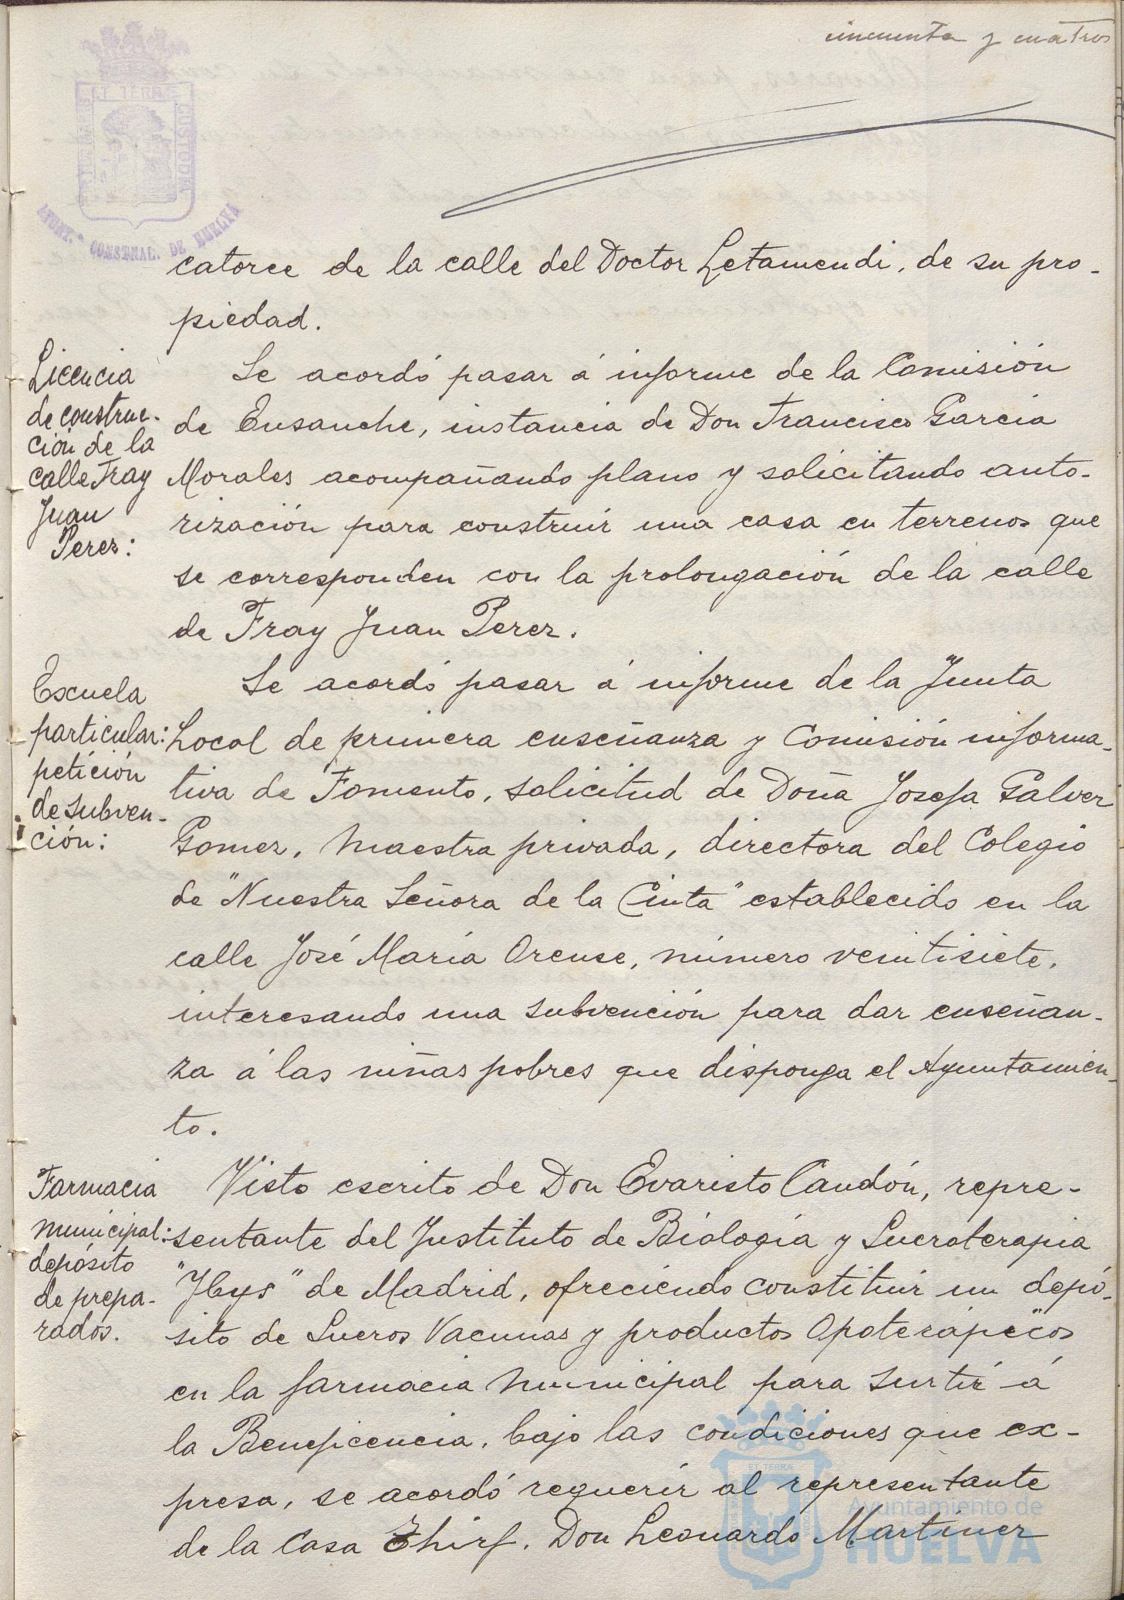 cincuenta y cuatro
ET TERRÆ CUSTODIA
AYUNT.º CONSTNAL. DE HUELVA
catorce de la calle del Doctor Letamendi, de su pro-
piedad.
Licencia
de construc-
ción de la
calle Fray
Juan
Perez:
Se acordó pasar á informe de la Comisión
de Ensanche, instancia de Don Francisco Garcia
Morales acompañando plano y solicitando auto-
rización para construir una casa en terrenos que
se corresponden con la prolongación de la calle
de Fray Juan Perez.
Escuela
particular:
petición
de subven-
ción:
Se acordó pasar á informe de la Junta
Local de primera enseñanza y Comisión informa-
tiva de Fomento, solicitud de Doña Josefa Galvez
Gomez, Maestra privada, directora del Colegio
de "Nuestra Señora de la Cinta" establecido en la
calle José María Orense, número veintisiete,
interesando una subvención para dar enseñan-
za á las niñas pobres que disponga el Ayuntamien-
to.
Farmacia
municipal:
depósito
de prepa-
rados.
Visto escrito de Don Evaristo Caudón, repre-
sentante del Instituto de Biología y Sueroterapia
"Ibys" de Madrid, ofreciendo constituir un depó-
sito de Sueros Vacunas y productos Opoterápicos
en la farmacia Municipal para surtir á
la Beneficencia, bajo las condiciones que ex-
presa, se acordó requerir al representante
de la Casa Thirf, Don Leonardo Martinez
ET TERRÆ
Ayuntamiento de
HUELVA